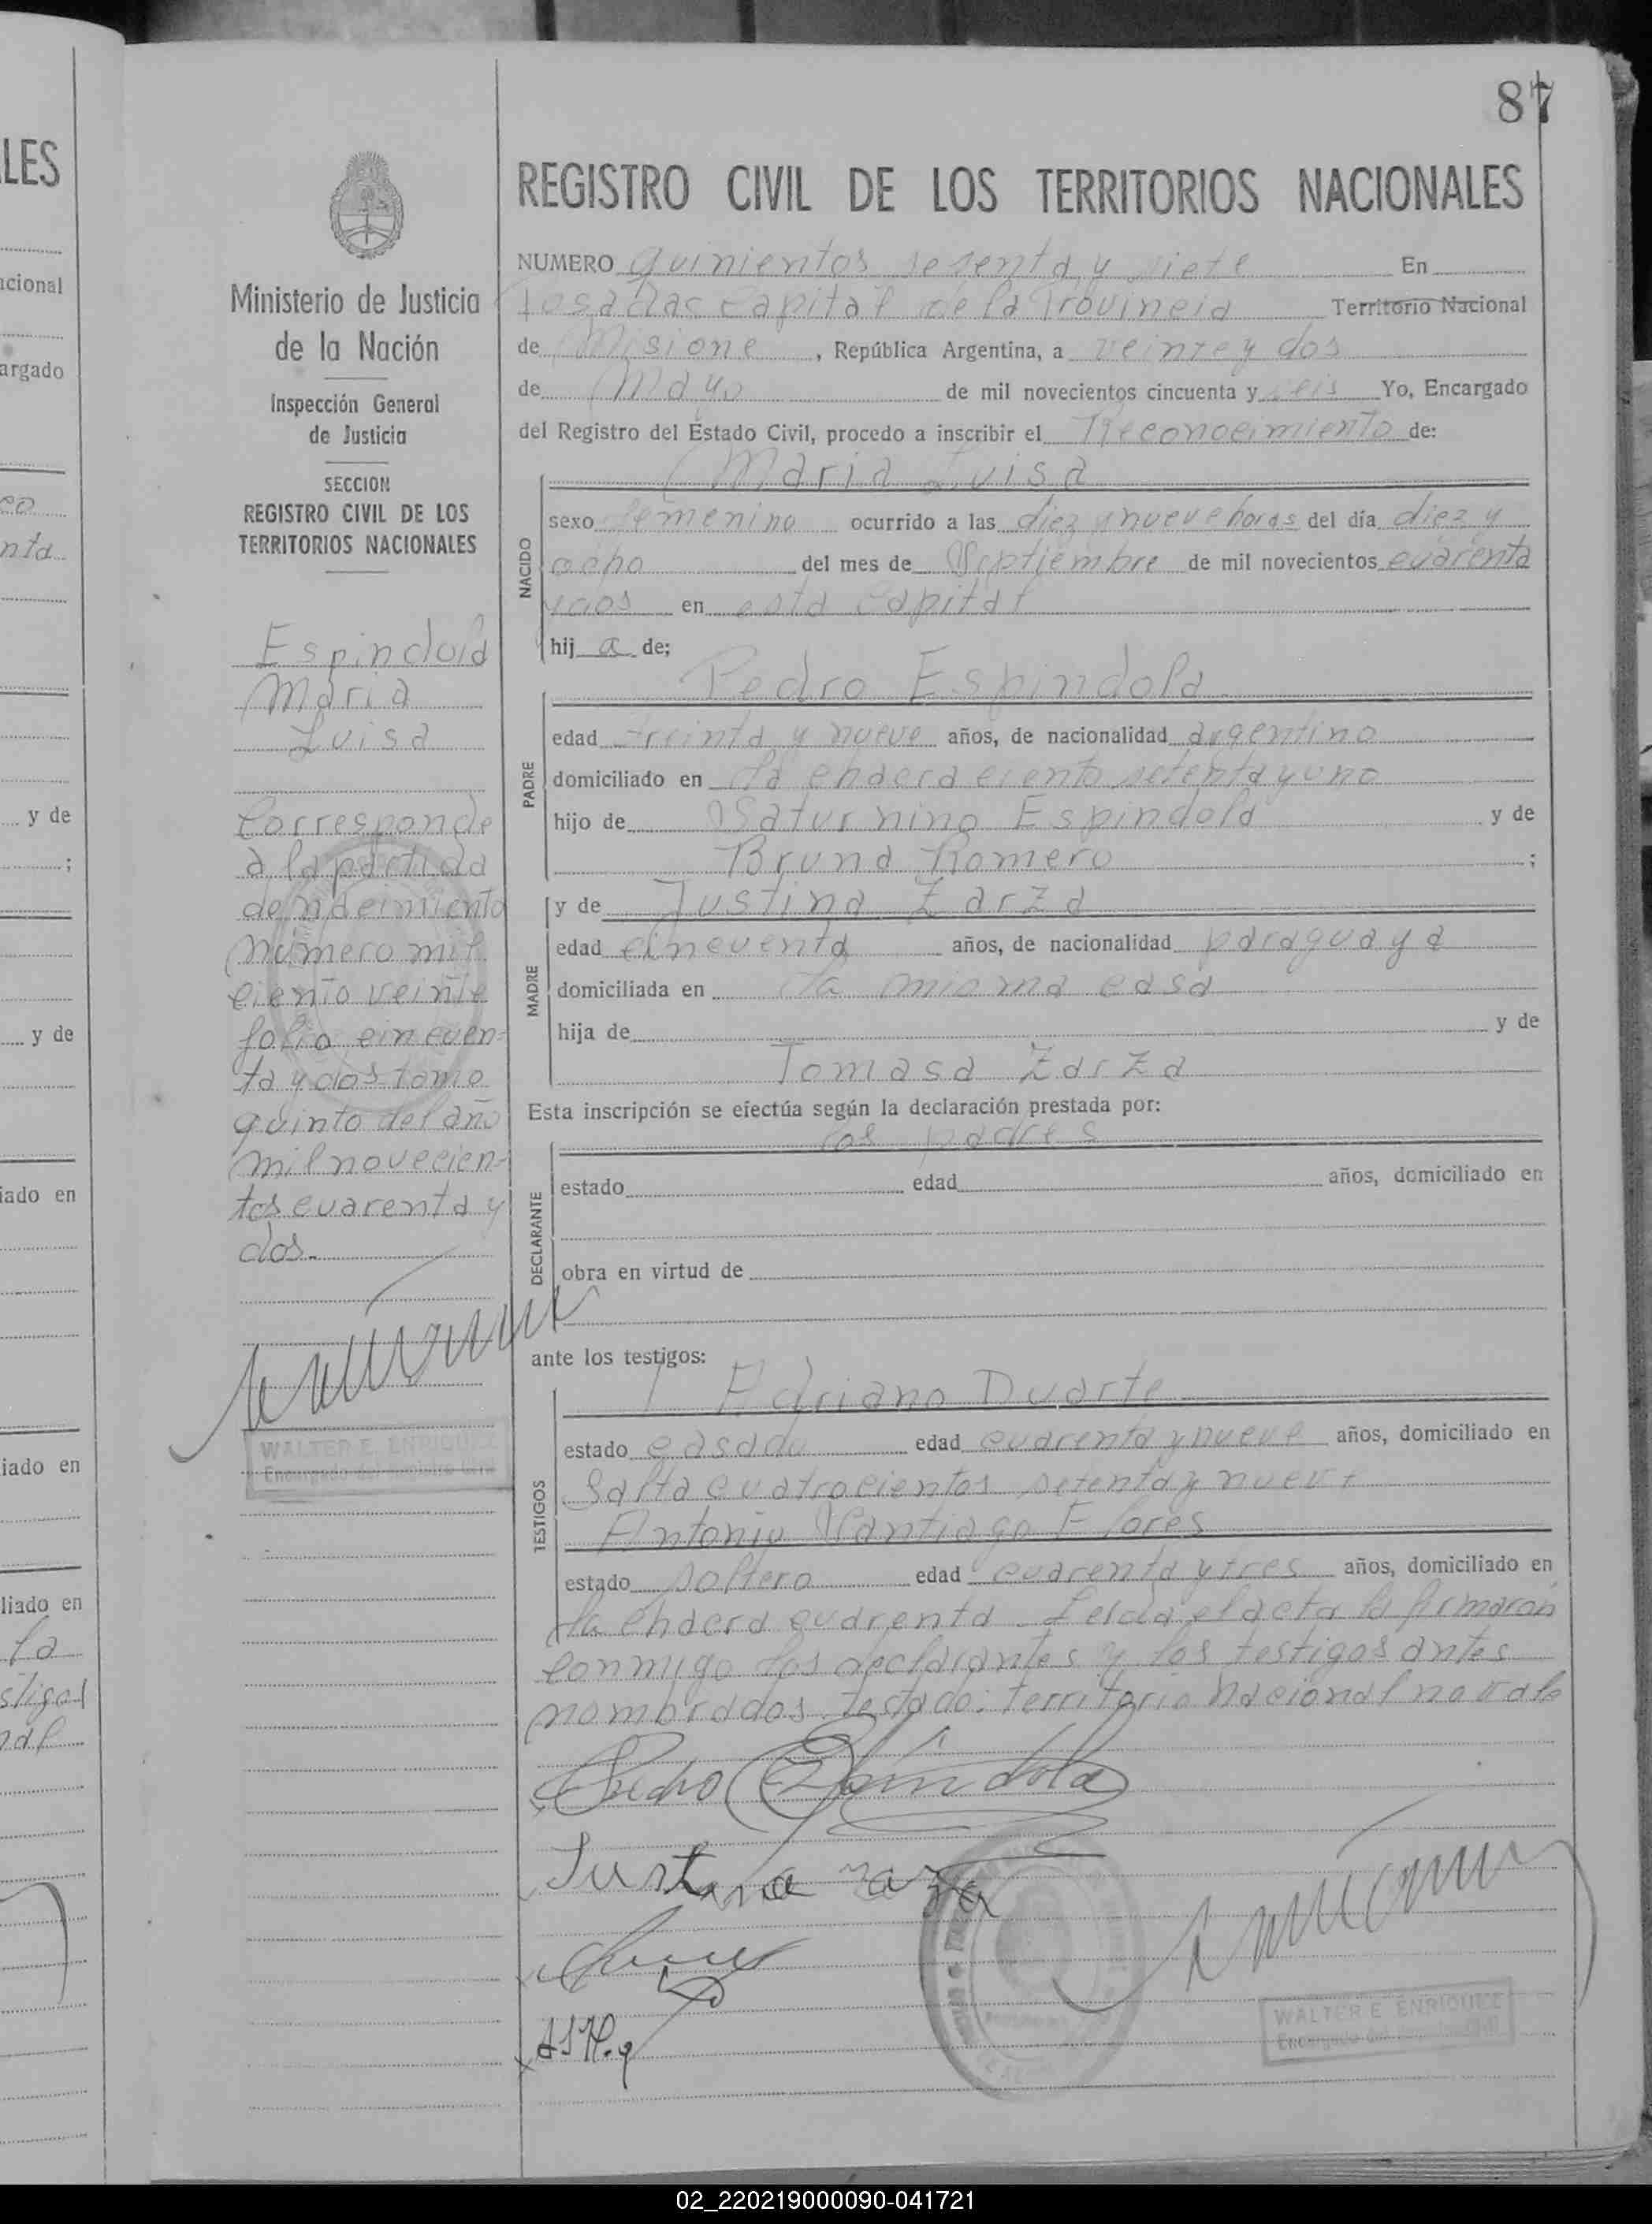 87
REGISTRO CIVIL DE LOS TERRITORIOS NACIONALES
NUMERO quinientos sesenta y siete En
Posadas capital de la Provincia Territorio Nacional
de Misione , República Argentina, a veinte y dos
de Mayo de mil novecientos cincuenta y seis Yo, Encargado
del Registro del Estado Civil, procedo a inscribir el Reconocimiento de:
Maria Luisa
NACIDO
sexo femenino ocurrido a las diez y nueve horas del día diez y
ocho del mes de Septiembre de mil novecientos cuarenta
y dos en esta Capital
hij a de;
PADRE
Pedro Espindola
edad treinta y nueve años, de nacionalidad argentino
domiciliado en la chacra ciento setenta y uno
hijo de Saturnino Espindola y de
Bruna Romero ;
MADRE
y de Justina Zarza
edad cincuenta años, de nacionalidad paraguaya
domiciliada en la misma casa
hija de y de
Tomasa Zarza
Esta inscripción se efectúa según la declaración prestada por:
DECLARANTE
los padres
estado edad años, domiciliado en
obra en virtud de
ante los testigos:
TESTIGOS
Adriano Duarte
estado casado edad cuarenta y nueve años, domiciliado en
Salta cuatrocientos setenta y nueve
Antonio Santiago Flores
estado soltero edad cuarenta y tres años, domiciliado en
la chacra cuarenta. Leida el acta la firmaron
conmigo los declarantes y los testigos antes
nombrados. testado: territorio nacional no vale
Pedro Espindola
Justina
WALTER E. ENRIQUEZ
Encargado del Registro Civil
Ministerio de Justicia
de la Nación
Inspección General
de Justicia
SECCION
REGISTRO CIVIL DE LOS
TERRITORIOS NACIONALES
Espindola
Maria
Luisa
Corresponde
a la partida
de nacimiento
número mil
ciento veinte
folio cincuen-
ta y dos tomo
quinto del año
mil novecien-
tos cuarenta y
dos.
WALTER E. ENRIQUEZ
Encargado del Registro Civil
LES
cional
argado
nta
y de
;
y de
iado en
iado en
liado en
la
stigos
nal
02_220219000090-041721